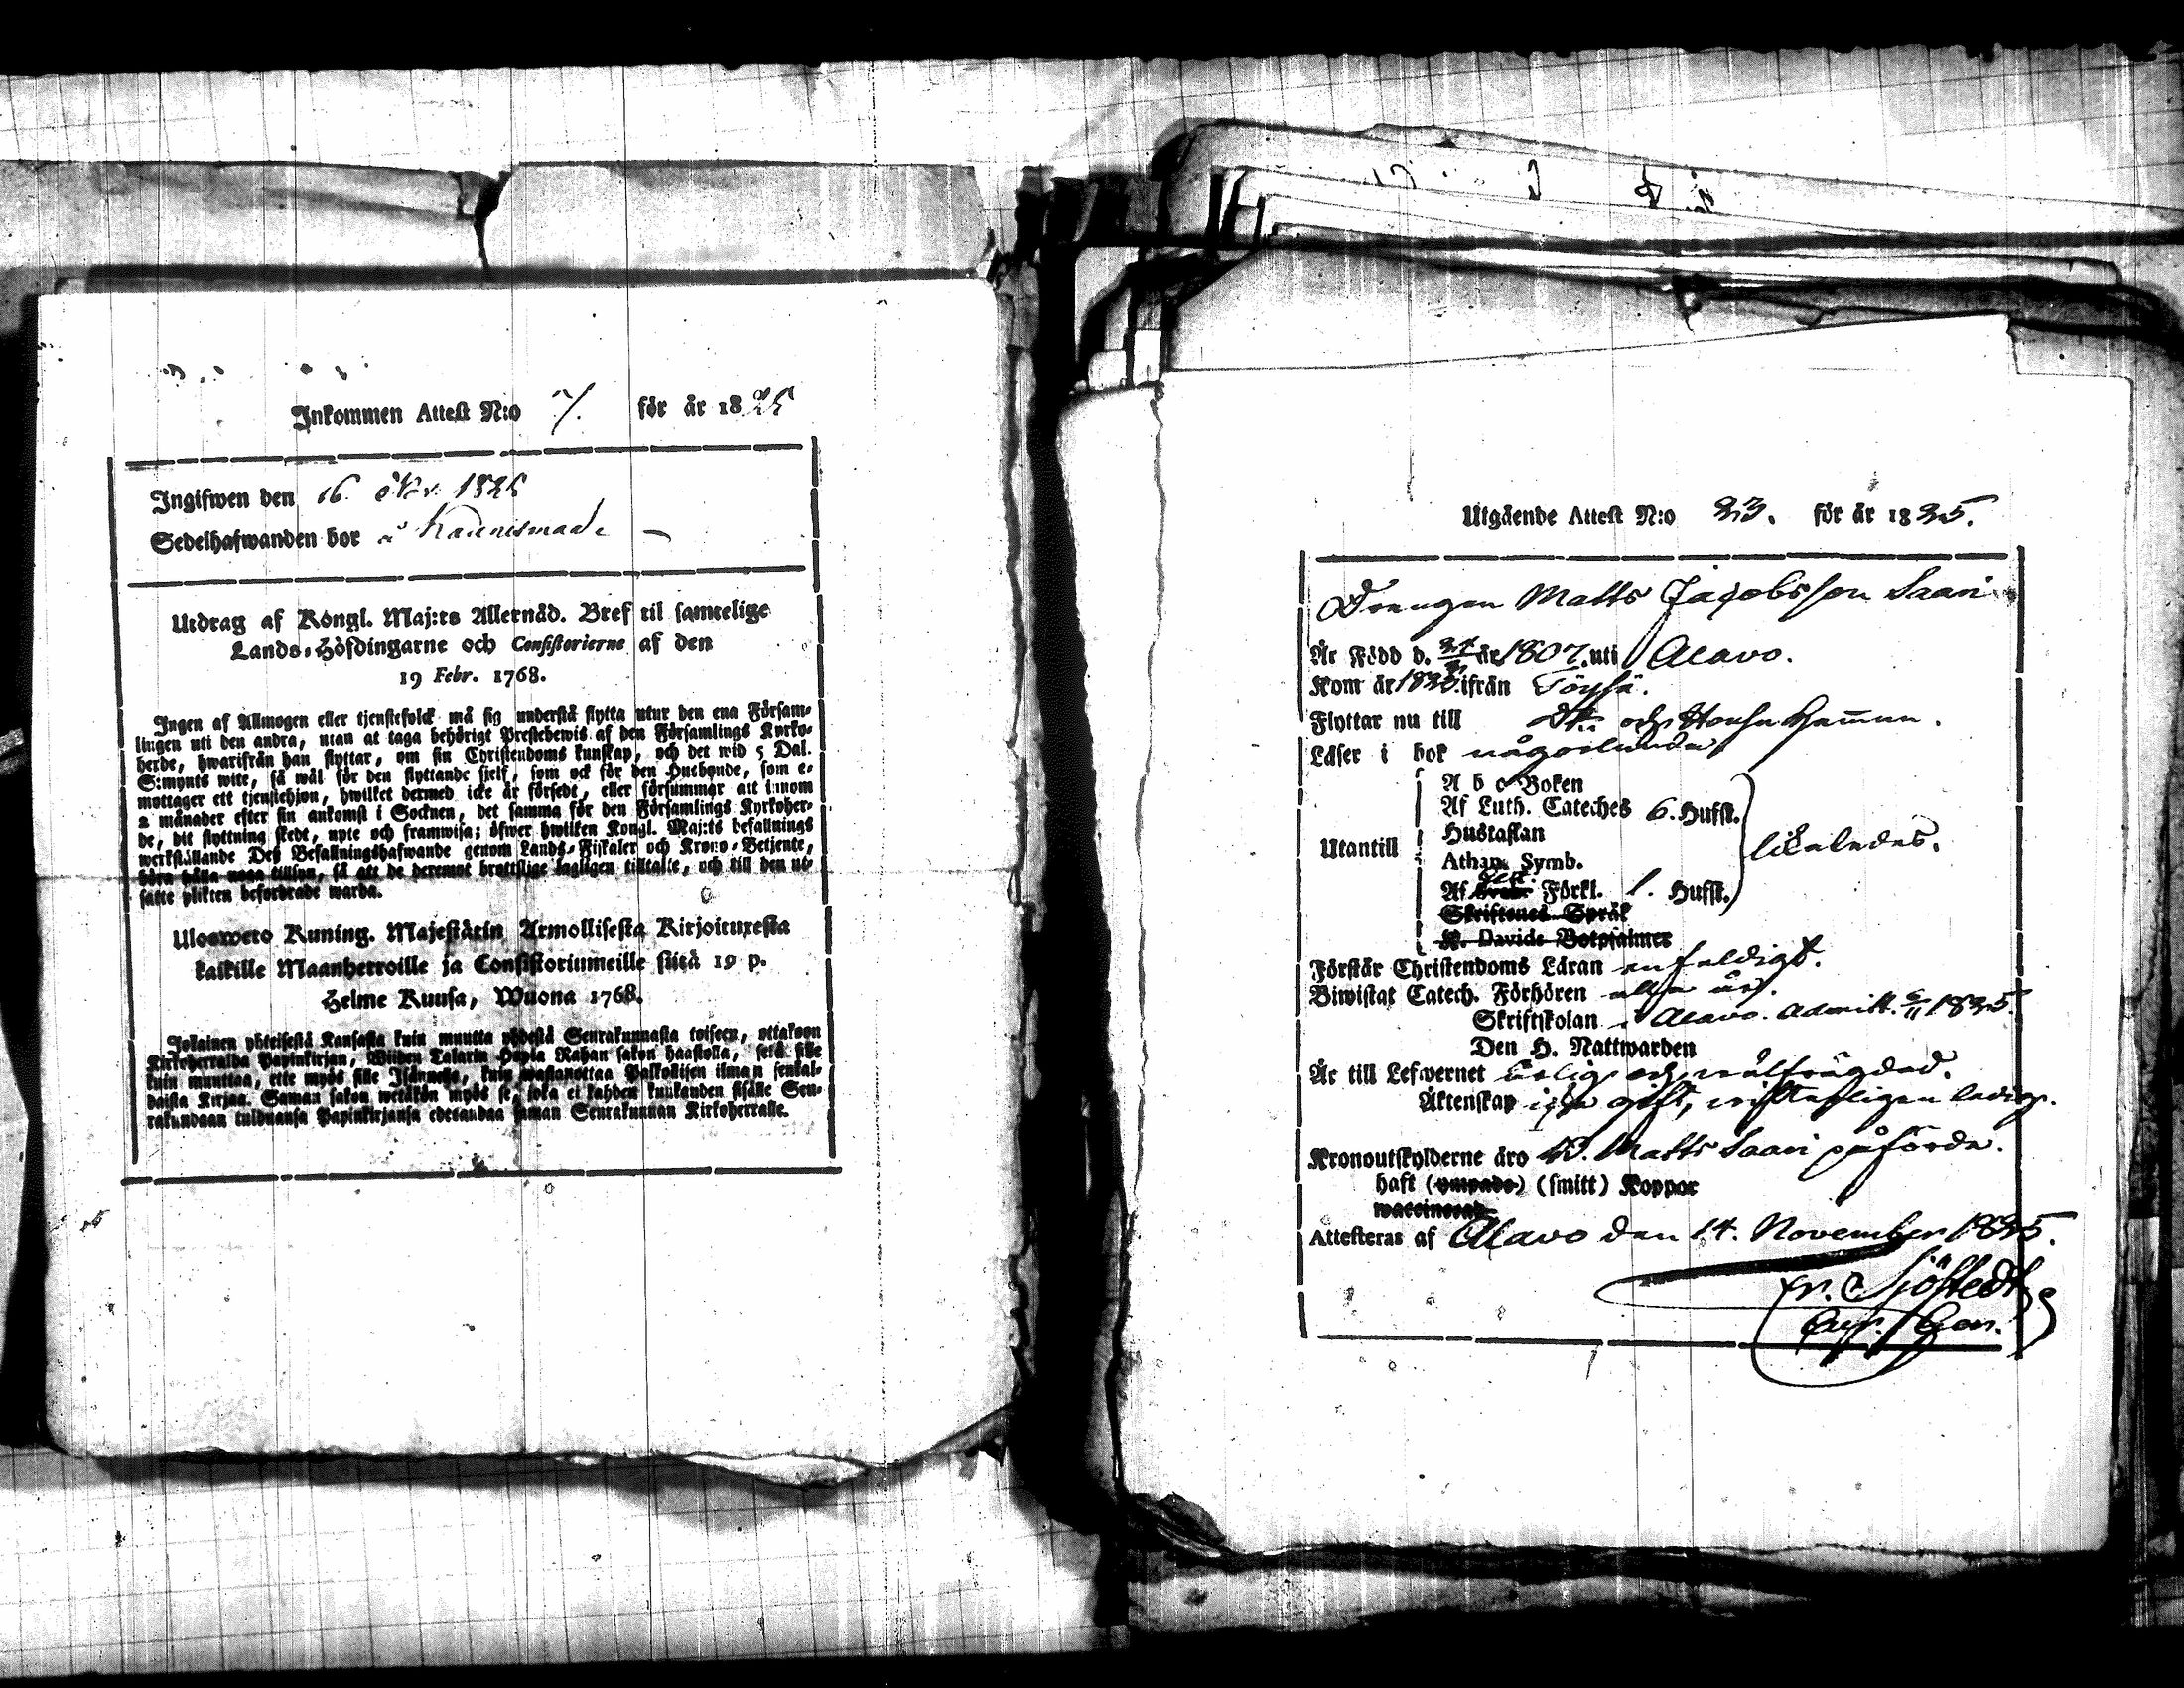 Inkommen Attest N:o 7. för år 1825
Ingifwen den 16. 1825
Sedelhafwanden bor å
Utdrag af Kongl. Maj:ts Allernåd. Bref til samtelige
Lands-Höfdingarne och Consistorierne af den
19 Febr. 1768.
Ingen af Allmogen eller tjenstefolck må sig understå flytta utur den ena Försam-
lingen uti den andra, utan at taga behörigt Prestebewis af den Församlings Kyrko-
herde, hwarifrån han flyttar, om sin Christendoms kunskap, och det wid 5 Dal.
S:mynts wite, så wäl för den flyttande sjelf, som ock för den Husbonde, som e-
mottager ett tjenstehjon, hwilket dermed icke är försedt, eller försummar att innom
2 månader efter sin ankomst i Socknen, det samma för den Församlings Kyrkoher-
de, dit flyttning skedt, upte och framwisa; öfwer hwilken Kongl. Maj:ts befallnings
werkställande Deß Befallningshafwande genom Lands-Fiskaler och Krono-Betjente,
böra hålla noga tillsyn, så att de deremot brottslige lagligen tilltalte, och till den ut-
satte plikten befordrade warda.
Ulosweto Kuning. Majestätin Armollisesta Kirjoituxesta
kaikille Maanherroille ja Consistoriumeille siitä 19 p.
Helme Kuusa, Wuona 1768.
Jokainen yhteisestä Kansasta kuin muutta yhdestä Seurakunnasta toiseen, ottakoon
Kirkoherralda Papinkirjan, Wiiden Talarin Hopia Rahan sakon haastolla, sekä sille
kuin muuttaa, ette myös sille Isännelle, kuin wastanottaa Palkollisen ilman senkal-
daista Kirjaa. Saman sakon wetäkön myös se, joka ei kahden kuukauden sisälle Seu-
rakundaan tulduansa Papinkirjansa edesandaa saman Seurakunnan Kirkoherralle.
Utgående Attest N:o 23. för år 1825.
Drengen Matts Jacobsson Saari
Är Född d. år 1807. uti Alavo.
Kom år ifrån Töysä.
Flyttar nu till och
Läser i bok någorlunda
A b c Boken
Af Luth. Cateches 6. Hufst.
Hustaflan
Utantill
likaledes.
Athan. Symb.
Af Förkl. 1. Hufst.
Skriftenes Språk
K. Davids Botpsalmer
Förstår Christendoms Läran enfaldigt.
Biwistat Catech. Förhören alla år.
Skriftskolan i Alavo. Admitt. 1825.
Den H. Nattwarden
Är till Lefwernet ärlig och wälfrägdad.
Äktenskap icke gift, ledig.
Kronoutskylderne äro Matts Saari påförda.
haft (ympade) (smitt) Koppor
waccinerad
Attesteras af Alavo den 14. November 1825.
Fr. Sjöstedt